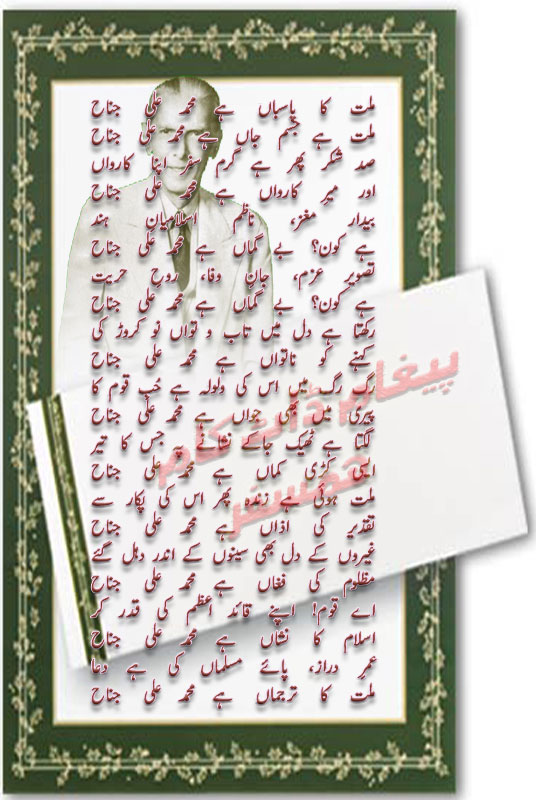 ملت کا پاسباں ہے محمد علی جناح
ملت ہے جسم جاں ہے محمد علی جناح
صد شکر پھر ہے گرم سفر اپنا کارواں
اور میر کارواں ہے محمد علی جناح
بیدار مغز، ناظم اسلامیان ہند
ہے کون؟ بے گماں ہے محمد علی جناح
تصویر عزم، جان وفا، روح حریت
ہے کون؟ بے گماں ہے محمد علی جناح
رکھتا ہے دل میں تاب و تواں نو کروڑ کی
کہنے کو ناتواں ہے محمد علی جناح
رگ رگ میں اس کی ولولہ ہے حب قوم کا
پیری میں بھی جواں ہے محمد علی جناح
لگتا ہے ٹھیک جاکے نشانے پہ جس کا تیر
ایسی کڑی کماں ہے محمد علی جناح
ملت ہوئی ہے زندہ پھر اس کی پکار سے
تقدیر کی اذاں ہے محمد علی جناح
غیروں کے دل بھی سینوں کے اندر دہل گئے
مظلوم کی فغاں ہے محمد علی جناح
اے قوم! اپنے قائد اعظم کی قدر کر
اسلام کا نشاں ہے محمد علی جناح
عمر دراز، پائے مسلماں کی ہے دعا
ملت کا ترجماں ہے محمد علی جناح
پیغام ڈاٹ کام